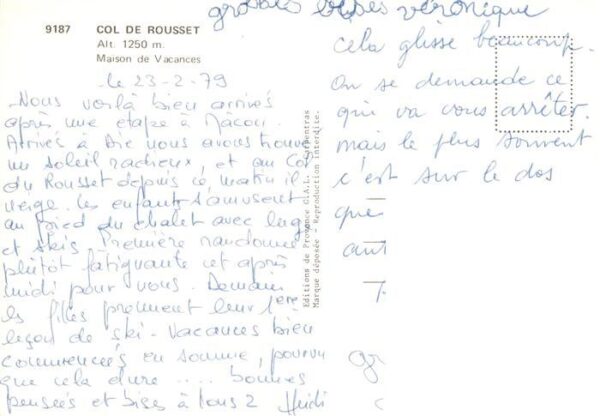 9187 COL DE ROUSSET
Alt. 1250 m.
Maison de Vacances
le 23-2-79
Nous voilà bien arrivés
après une étape à Mâcon.
Arrivés à Die nous avons trouvé
un soleil radieux, et au Col
du Rousset depuis ce matin il
neige. les enfants s'amusent
au pied du chalet avec luge
et skis. Première randonnée
plutôt fatiguante cet après
midi pour vous. Demain
les filles prennent leur 1ère
leçon de ski. Vacances bien
commencées en somme, pourvu
que cela dure .... bonnes
pensées et bises à tous 2 Heidi
Editions de Provence C.A.L. - Carpentras
Marque déposée - Reproduction interdite.
grosses bises véronique
cela glisse beaucoup.
On se demande ce
qui va vous arrêter.
mais le plus souvent
c'est sur le dos
que
ant
gr